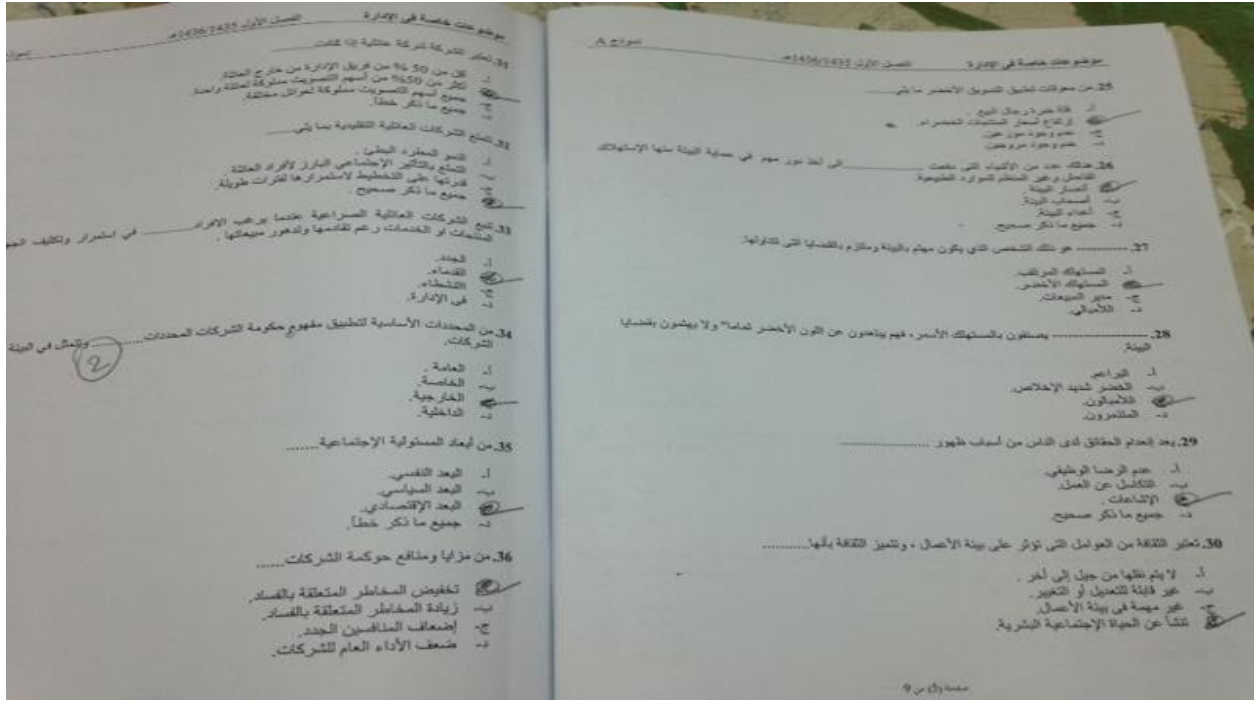 موضوعات خاصة في الإدارة الفصل الأول 1436/1435هـ نموذج A
25.من معوقات تطبيق التسويق الأخضر ما يلي......
أ. قلة خبرة رجال البيع .
ب. ارتفاع أسعار المنتجات الخضراء.
ج- عدم وجود موزعين.
د- عدم وجود مروجين.
26.هنالك عدد من الأشياء التي دفعت ............ الى أخذ دور مهم في حماية البيئة منها الإستهلاك
الفاحش وغير المنظم للموارد الطبيعية.
أنصار البيئة
ب- أصحاب البيئة.
ج- أعداء البيئة.
د- جميع ما ذكر صحيح.
27. ------------ هو ذلك الشخص الذي يكون مهتم بالبيئة وملتزم بالقضايا التي تتناولها.
أ. المستهلك المرتقب.
المستهلك الأخضر.
ج- مدير المبيعات.
د- اللامبالي.
28. ------------ يصنفون بالمستهلك الأسمر، فهم يبتعدون عن اللون الأخضر تماما" ولا يهتمون بقضايا
البيئة.
أ. البراعم.
ب- الخضر شديد الإخلاص.
اللامبالون.
د- المتذمرون.
29.يعد إنعدام الحقائق لدى الناس من أسباب ظهور ..................
أ. عدم الرضا الوظيفي.
ب- التكاسل عن العمل.
الإشاعات .
د- جميع ما ذكر صحيح.
30.تعتبر الثقافة من العوامل التي تؤثر على بيئة الأعمال ، وتتميز الثقافة بأنها...........
أ. لا يتم نقلها من جيل إلى أخر .
ب- غير قابلة للتعديل أو التغيير.
ج- غير مهمة في بيئة الأعمال.
تنشأ عن الحياة الإجتماعية البشرية.
صفحة (5) من 9
موضوعات خاصة في الإدارة الفصل الأول 1436/1435هـ
31.تعتبر الشركة شركة عائلية إذا كانت.......
أ. أقل من 50 % من فريق الإدارة من خارج العائلة.
أكثر من 50% من أسهم التصويت مملوكة لعائلة واحدة.
ج- جميع أسهم التصويت مملوكة لعوائل مختلفة.
د- جميع ما ذكر خطأ.
32.تتمتع الشركات العائلية التقليدية بما يلي......
أ. النمو المطرد البطئ.
ب- التمتع بالتأثير الإجتماعي البارز لأفراد العائلة.
ج- قدرتها على التخطيط لاستمرارها لفترات طويلة.
جميع ما ذكر صحيح .
33.تتبع الشركات العائلية الصراعية عندما يرغب الافراد............ في استمرار وتكثيف
المنتجات او الخدمات رغم تقادمها وتدهور مبيعاتها .
أ. الجدد.
القدماء.
ج- النشطاء.
د- في الإدارة.
34.من المحددات الأساسية لتطبيق مفهوم حكومة الشركات المحددات............ وتتمثل في البيئة
الشركات.
2
أ. العامة .
ب- الخاصة.
الخارجية.
د- الداخلية.
35.من أبعاد المسئولية الإجتماعية.......
أ. البعد النفسي.
ب- البعد السياسي.
البعد الإقتصادي.
د- جميع ما ذكر خطأ.
36.من مزايا ومنافع حوكمة الشركات......
تخفيض المخاطر المتعلقة بالفساد.
ب- زيادة المخاطر المتعلقة بالفساد.
ج- إضعاف المنافسين الجدد.
د- ضعف الأداء العام للشركات.